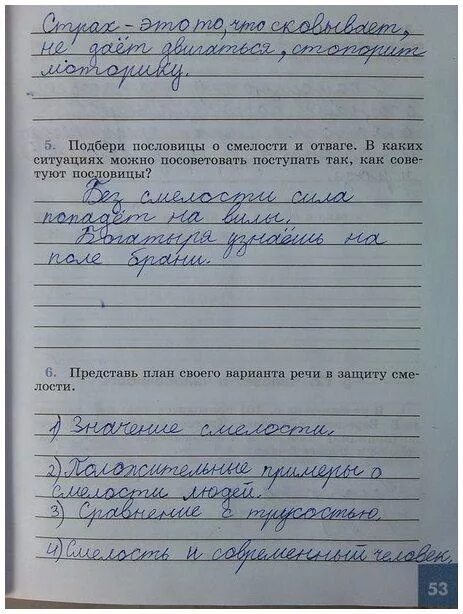 Страх - это то, что сковывает,
не даёт двигаться, стопорит
моторику.
5. Подбери пословицы о смелости и отваге. В каких
ситуациях можно посоветовать поступать так, как сове-
туют пословицы?
Без смелости сила
попадёт на вилы.
Богатыря узнаёшь на
поле брани.
6. Представь план своего варианта речи в защиту сме-
лости.
1) Значение смелости.
2) Положительные примеры о
смелости людей.
3) Сравнение с трусостью.
4) Смелость и современный человек.
53